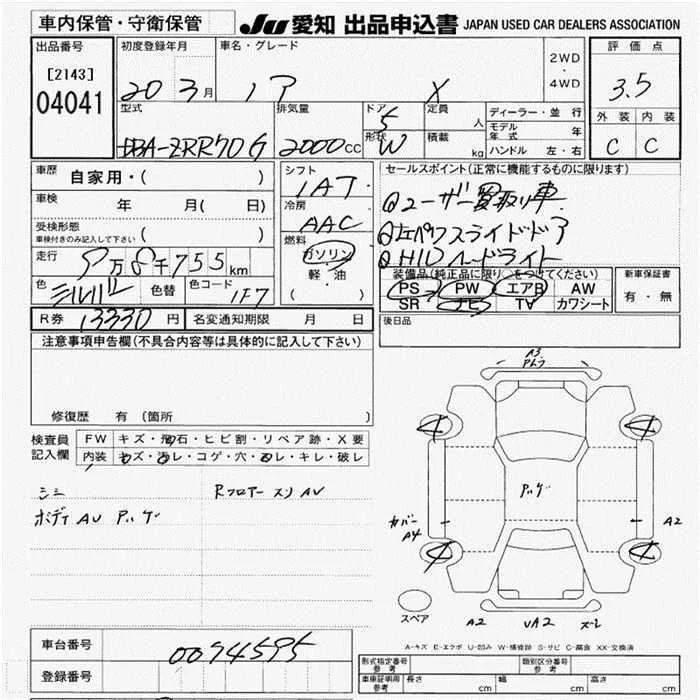 車内保管・守衛保管
JU 愛知 出品申込書 JAPAN USED CAR DEALERS ASSOCIATION
出品番号
[2143]
04041
初度登録年月
20 3月
車名・グレード
X
2WD
・
4WD
評価点
3.5
外装 内装
C C
型式
DBA-ZRR70G
排気量
2000cc
ドア
5
形状
W
定員 人
積載 kg
ディーラー・並行
モデル年式 年
ハンドル 左・右
車歴
自家用・( )
車検 年 月( 日)
受検形態
車検付きのみ記入して下さい ( )
走行
8千755km
色
シルバー
色替
色コード
1F7
シフト
IAT
冷房
AAC
燃料
ガソリン
・
軽・油
( )
セールスポイント(正常に機能するものに限ります)
ユーザー買取り車
左パワスライドドア
HIDヘッドライト
装備品(純正品に限り)をつけてください)
PS PW エアB AW
SR ナビ TV カワシート
新車保証書
有・無
後日品
R券 13330円 名変通知期限 月 日
注意事項申告欄(不具合内容等は具体的に記入して下さい)
修復歴 有(箇所 )
検査員記入欄
FW キズ・飛石・ヒビ割・リペア跡・X要
内装 キズ・汚レ・コゲ・穴・スレ・キレ・破レ
シミ
Rフロアー スリAU
ボディAU
A3
カバー
A4
A2
スペア
A2
UA2
スーレ
A-キズ E-エクボ U-凹み W-補修跡 S-サビ C-腐食 XX-交換済
車台番号
0074595
登録番号
型式指定番号 参考
類別区分番号 参考
車庫証明用 参考 長さ cm 幅 cm 高さ cm